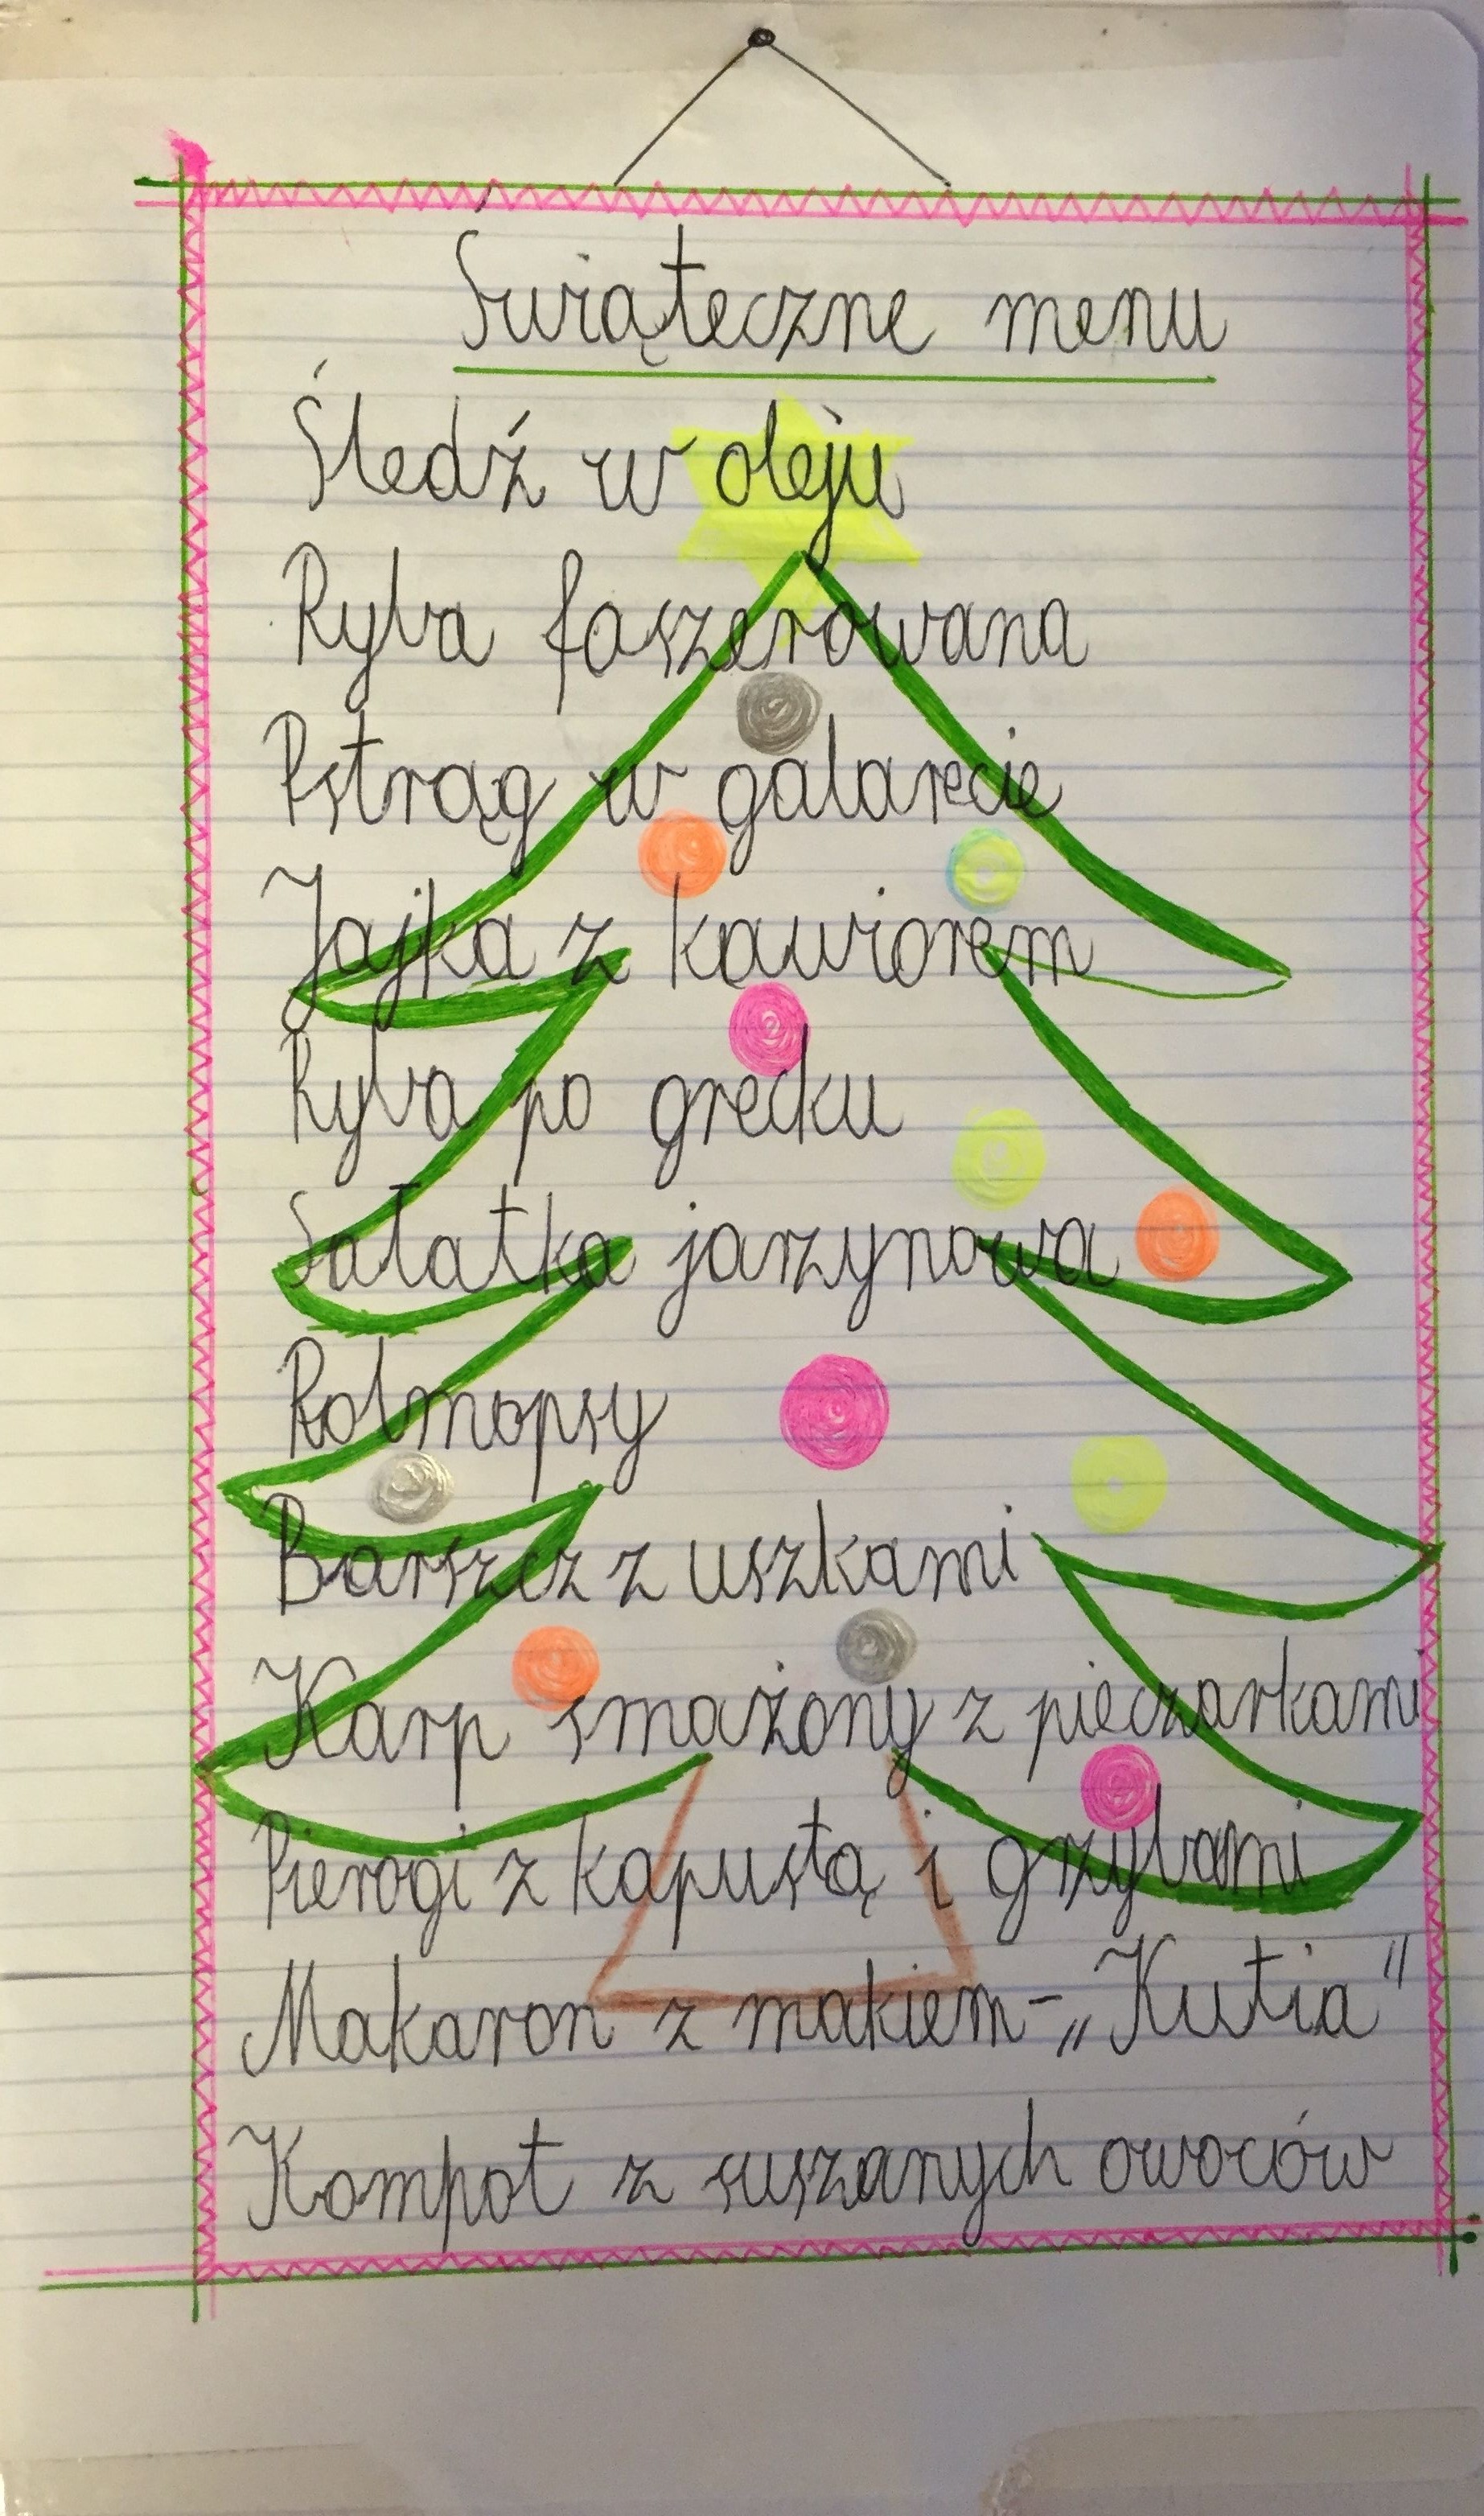 Świąteczne menu
Śledź w oleju
Ryba faszerowana
Pstrąg w galarecie
Jajka z kawiorem
Ryba po grecku
Sałatka jarzynowa
Rolmopsy
Barszcz z uszkami
Karp smażony z pieczarkami
Pierogi z kapustą i grzybami
Makaron z makiem - „Kutia"
Kompot z suszanych owoców